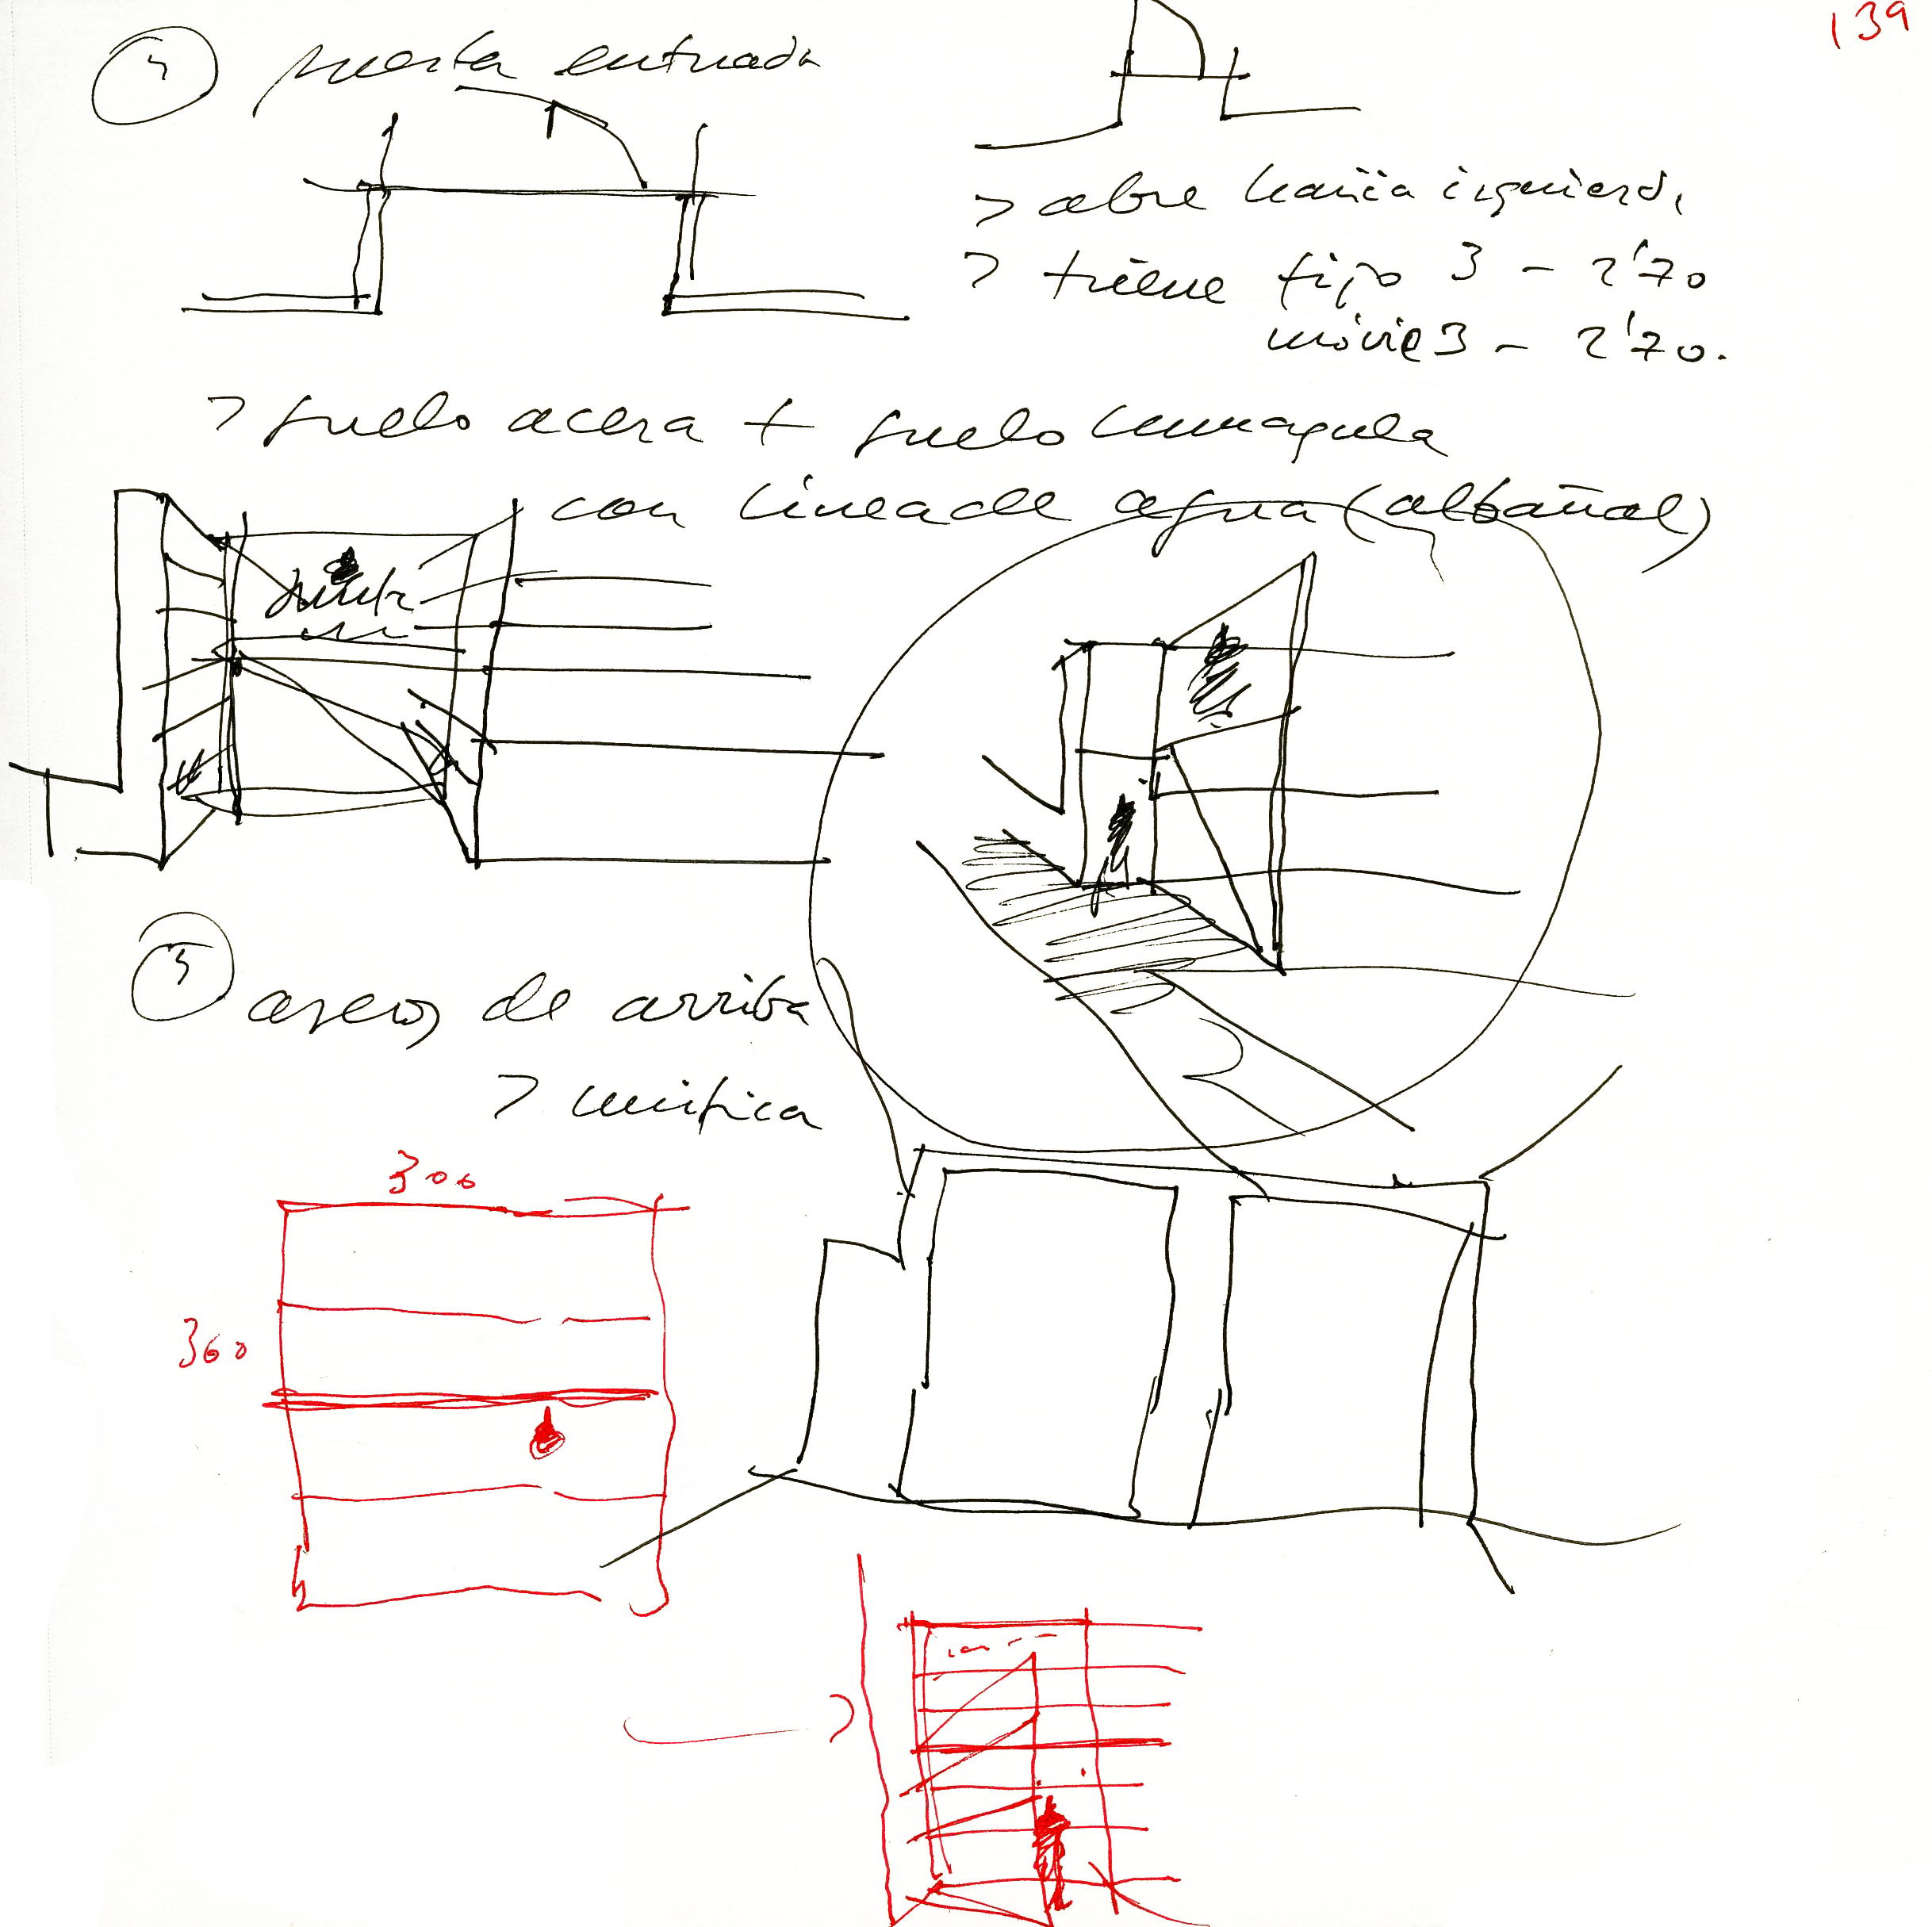 139
4 puerta entrada
> abre hacia izquierd.
> tiene fijo 3 - 2'70
móvil 3 - 2'70.
> suelo acera + suelo
con linea de agua (albañal)
5 aseos de arriba
> unifica
300
360